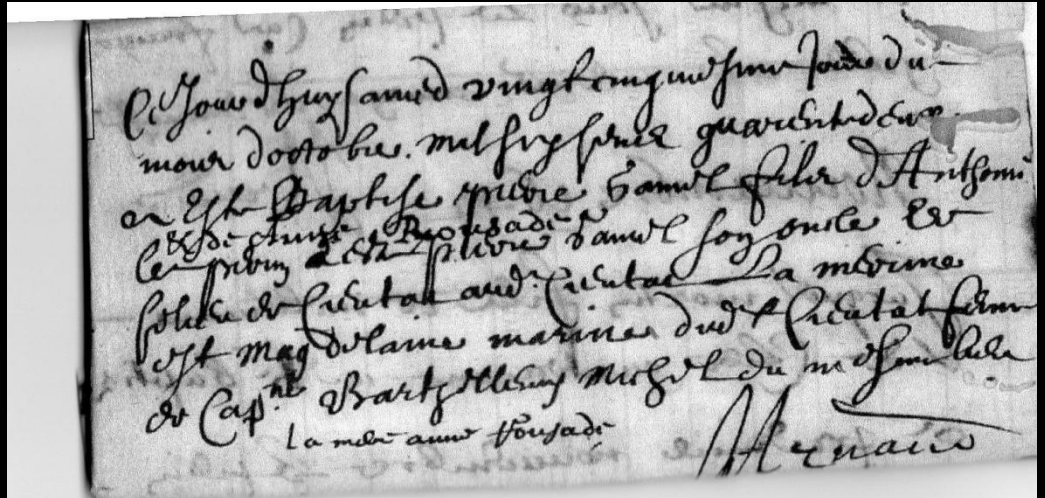 Ce Jourdhuy samed vingt cinquiesme Jour du
mois doctobre mil six sens quarente deux
a Este Baptise pierre samuel filz d'Anthoni
& de anne Rousade
le pirin est pierre samuel son oncle et
de Cieutat aud. Cieutat La merine
est magdelaine marine dud. Cieutat feme
de Cap.ne Barthellemy Michel du mesme lieu
la mere anne Rousade